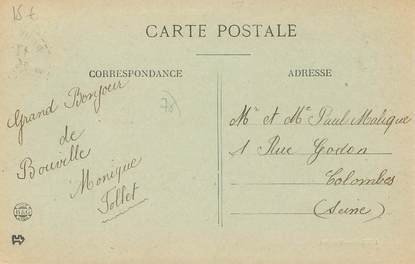 15 €
CARTE POSTALE
CORRESPONDANCE
ADRESSE
78
Grand Bonjour
de
Bouville
Monique
Tollet
Mr et Me Paul Malique
1 Rue Godon
Colombes
(Seine)